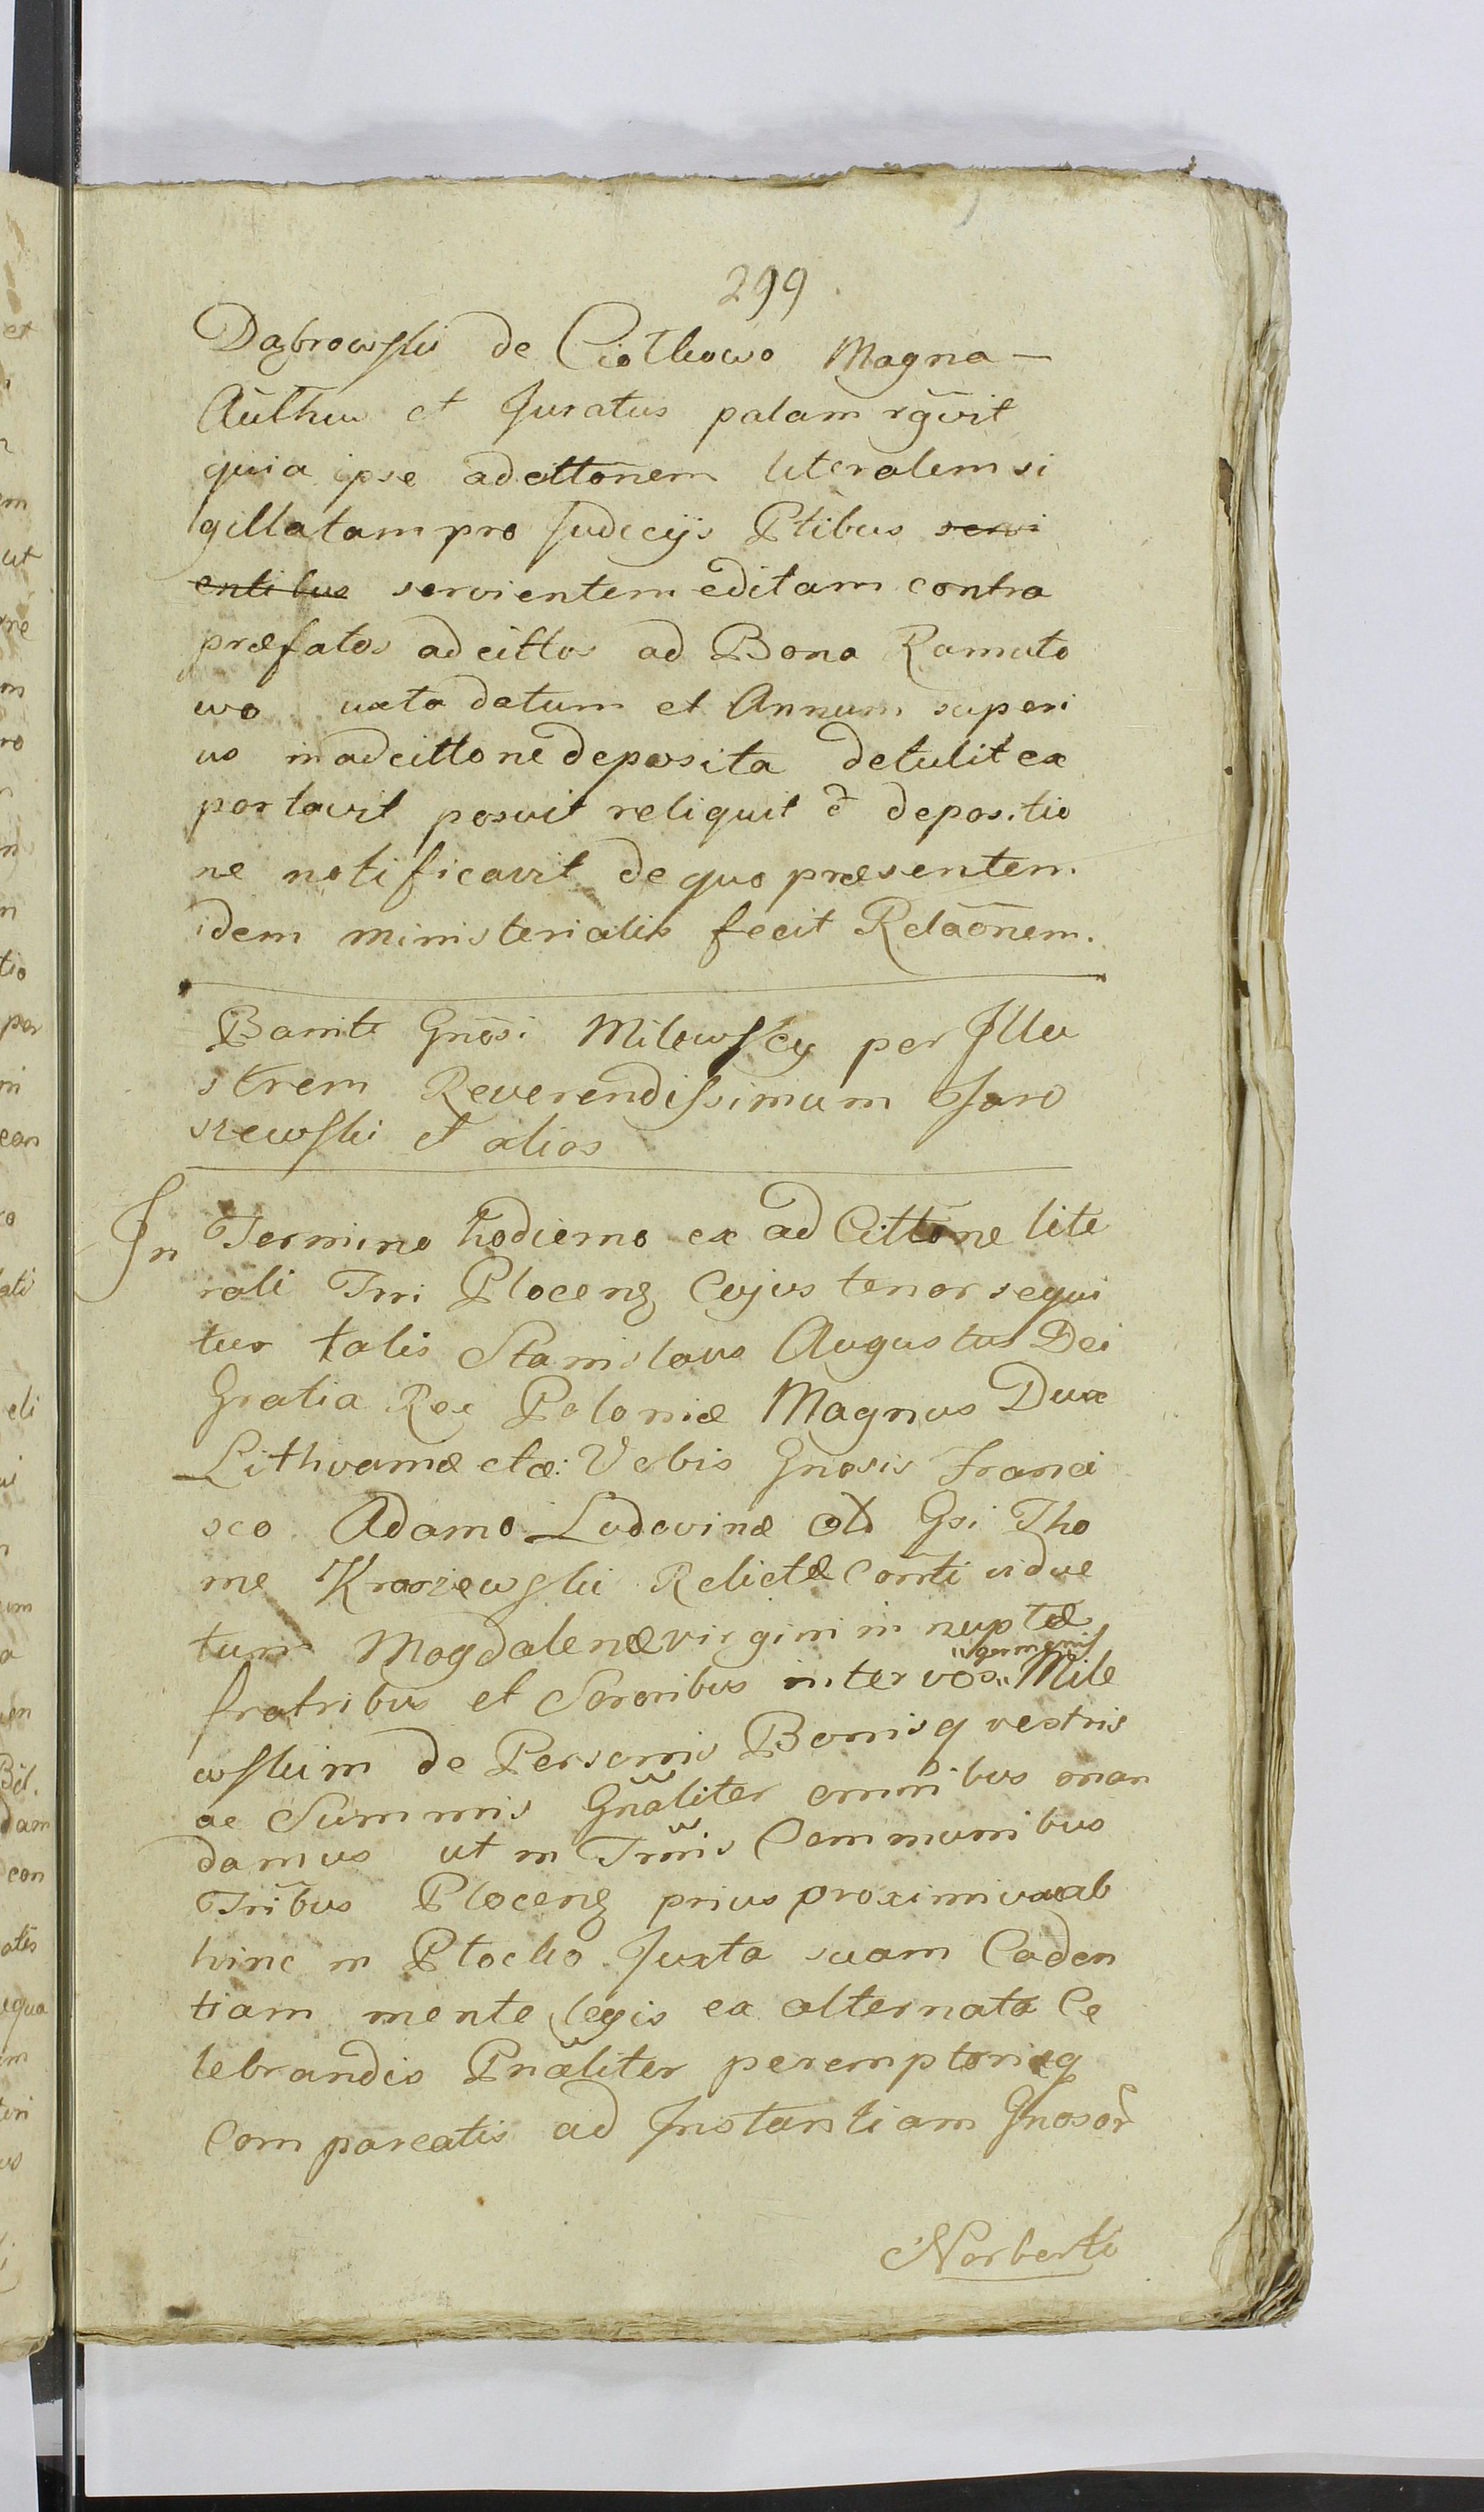 299
Dąbrowski de Ciołkowo Magna —
Auth̃en et Juratus palam rg̃vit
quia ipse adcittõnem literalem si
gillatam pro Judicijs Ptibus servi
entibus servientem editam contra
præfatos adcittos ad Bona Ramuto
wo uxta datum et Annum superi
us in adcittone deposita detulit ex
portavit posuit reliquit et depositio
ne notificavit de quo præsentem
idem ministerialis fecit Relaõnem.
Bannit Gnõsi Milewscy per Illu
strem Reverendissimum Jaro
szewski et alios
In Termino hodierno ex ad Cittõne lite
rali Trri Plocenz Cujus tenor sequi
tur talis Stanislaus Augustus Dei
Gratia Rex Poloniæ Magnus Dux
Lithvaniæ etcæ: Vobis Gnosis Franci
sco Adamo Ludovinæ Gsi Tho
me Kraszewski Relictæ Con̄ti viduæ
tum Magdalenæ virgini in nuptæ
fratribus et Sororibus inter vos „germanis„ Mile
wskim de Personis Bonisq vestris
ac Summis Gnãliter omnibus man
damus ut in Trm̃is Communibus
Trĩbus Plocenz prius proximius ab
hinc in Płocko Juxta suam Caden
tiam mente legis ex alternata Ce
lebrandis Pnãliter peremptorieq
Compareatis ad Instantiam Gnosor̃
Norberti